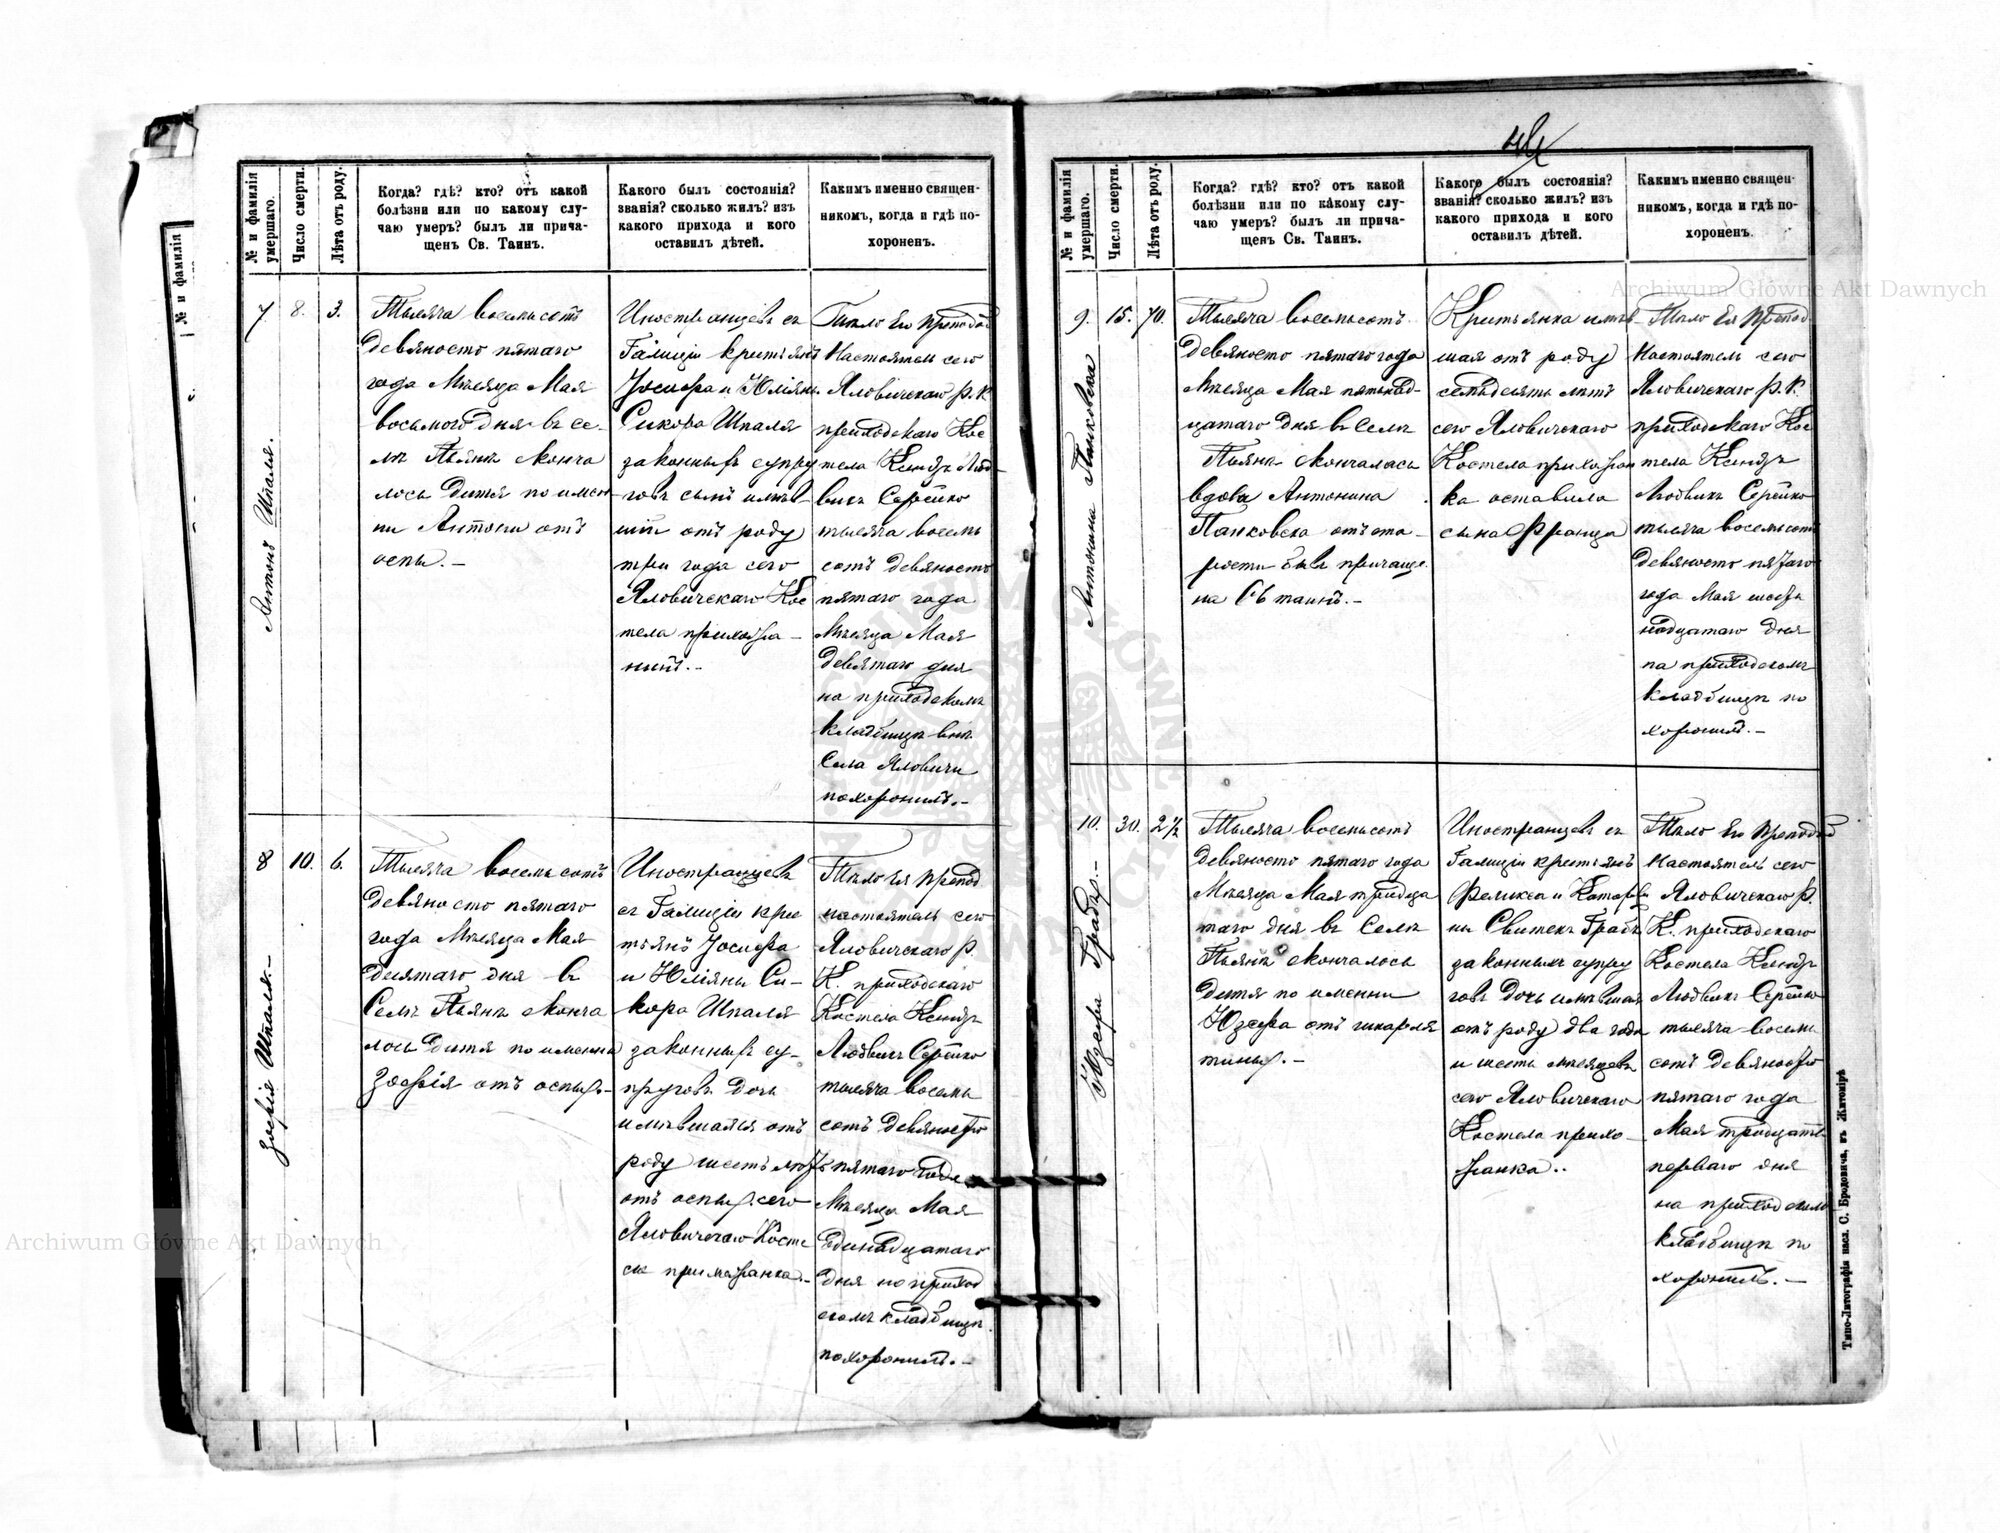 № и фамилія умершаго.
Число смерти.
Лѣта отъ роду.
Когда? гдѣ? кто? отъ какой
болѣзни или по какому слу-
чаю умеръ? былъ ли прича-
щенъ Св. Таинъ.
Какого былъ состоянія?
званія? сколько жилъ? изъ
какого прихода и кого
оставилъ дѣтей.
Какимъ именно священ-
никомъ, когда и гдѣ по-
хороненъ.
7.
Антонъ Шпаля.
8.
3.
Тысяча восемьсотъ
девяносто пятаго
года Мѣсяца Мая
восьмого дня въ се-
лѣ Пьянѣ сконча
лось дитя по имен
ни Антони отъ
оспы.-
Иностранцевъ съ
Галиціи крестьянъ
Іосифа и Юліяны
Сикора Шпаля
законныхъ супру
говъ сынъ имѣв-
шій отъ роду
три года сего
Яловичскаго Кос
тела прихожа-
нинъ.-
Тѣло Его Препод
Настоятель сего
Яловичскаго Р. К
приходскаго Кос
тела Ксендзъ Люд-
викъ Серейко
тысяча восемь
сотъ девяносто
пятаго года
Мѣсяца Мая
девятаго дня
на приходскомъ
кладбищѣ внѣ
Села Яловичи
похоронилъ.-
8
Зофія Шпаля.-
10.
6.
Тысяча восемьсотъ
девяносто пятаго
года Мѣсяца Мая
десятаго дня въ
Селѣ Пьянѣ сконча
лось дитя по имени
Зофія отъ оспы.-
Иностранцевъ
съ Галиціи крес
тьянъ Іосифа
и Юліяны Си-
кора Шпаля
законныхъ су-
пруговъ дочь
имѣвшаяся отъ
роду шесть лѣтъ
отъ оспы. сего
Яловичскаго Косте
ла прихожанка.-
Тѣло Ея Препод
настоятель сего
Яловичскаго Р.
К. приходскаго
Костела Ксендзъ
Людвикъ Серейко
тысяча восемь
сотъ девяносто
пятаго года
Мѣсяца Мая
Единадцатаго
дня на приход
скомъ кладбищѣ
похоронилъ.-
№ и фамилія умершаго.
Число смерти.
Лѣта отъ роду.
Когда? гдѣ? кто? отъ какой
болѣзни или по какому слу-
чаю умеръ? былъ ли прича-
щенъ Св. Таинъ.
Какого былъ состоянія?
званія? сколько жилъ? изъ
какого прихода и кого
оставилъ дѣтей.
Какимъ именно священ-
никомъ, когда и гдѣ по-
хороненъ.
9.
Антонина Панковска
15.
70.
Тысяча восемьсотъ
девяносто пятаго года
Мѣсяца Мая пятьнад-
цатаго дня въ Селѣ
Пьянѣ скончалась
вдова Антонина
Панковска отъ ста-
рости бывъ причаще
на Св таинъ.-
Крестьянка имѣв
шая отъ роду
семьдесять лѣтъ
сего Яловичскаго
Костела прихожан
ка оставила
сына Франца
Тѣло Ея Препод.
Настоятель сего
Яловичскаго Р. К.
приходскаго Кос
тела Ксендзъ
Людвикъ Серейко
тысяча восемьсотъ
девяносто пятаго
года Мая шесть
надцатаго дня
на приходскомъ
кладбищѣ по
хоронилъ.-
10.
Юзефа Грабъ.-
30.
2 1/2
Тысяча восемьсотъ
девяносто пятаго года
Мѣсяца Мая тридца
таго дня въ Селѣ
Пьянѣ скончалось
дитя по именни
Юзефа отъ шкарля
тины.-
Иностранцевъ съ
Галиціи крестьянъ
Феликса и Катары
ны Свитекъ Грабъ
законныхъ супру
говъ дочь имѣвшая
отъ роду два года
и шесть мѣсяцевъ
сего Яловичскаго
Костела прихо-
жанка..
Тѣло Ея Препод
Настоятель сего
Яловичскаго Р.
К. приходскаго
Костела Ксендзъ
Людвикъ Серейко
тысяча восемь
сотъ девяносто
пятаго года
Мая тридцать
перваго дня
на приходскомъ
кладбищѣ по
хоронилъ.-
Типо-Литографія насл. С. Бродовича, въ Житомірѣ
№ и фамилія
Archiwum Główne Akt Dawnych
Archiwum Główne Akt Dawnych